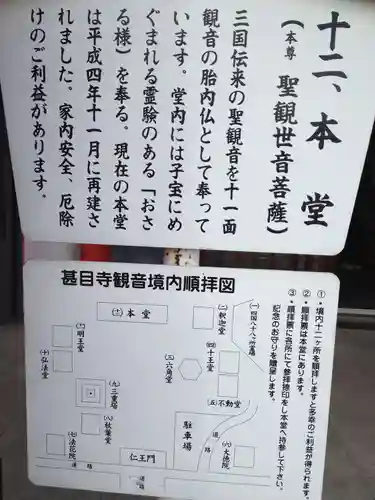 十二、本堂
（本尊 聖観世音菩薩）
三国伝来の聖観音を十一面
観音の胎内仏として奉って
います。堂内には子宝にめ
ぐまれる霊験のある「おさ
る様」を奉る。現在の本堂
は平成四年十一月に再建さ
れました。家内安全、厄除
けのご利益があります。
甚目寺観音境内順拝図
①・境内十二ヶ所を順拝しますと多幸のご利益が得られます。
②・順拝票は本堂にあります。
③・順拝票に各所にて参拝捺印をし本堂へ持参して下さい。
記念のお守りを贈呈します。
(一)四国八十八ヶ所霊場
(二)釈迦堂
(三)六角堂
(四)十王堂
(五)不動堂
(六)大徳院
(七)法花院
(八)秋葉堂
(九)三重塔
(十)弘法堂
(十一)明王堂
(十二)本堂
仁王門
駐車場
道路
道路
道路